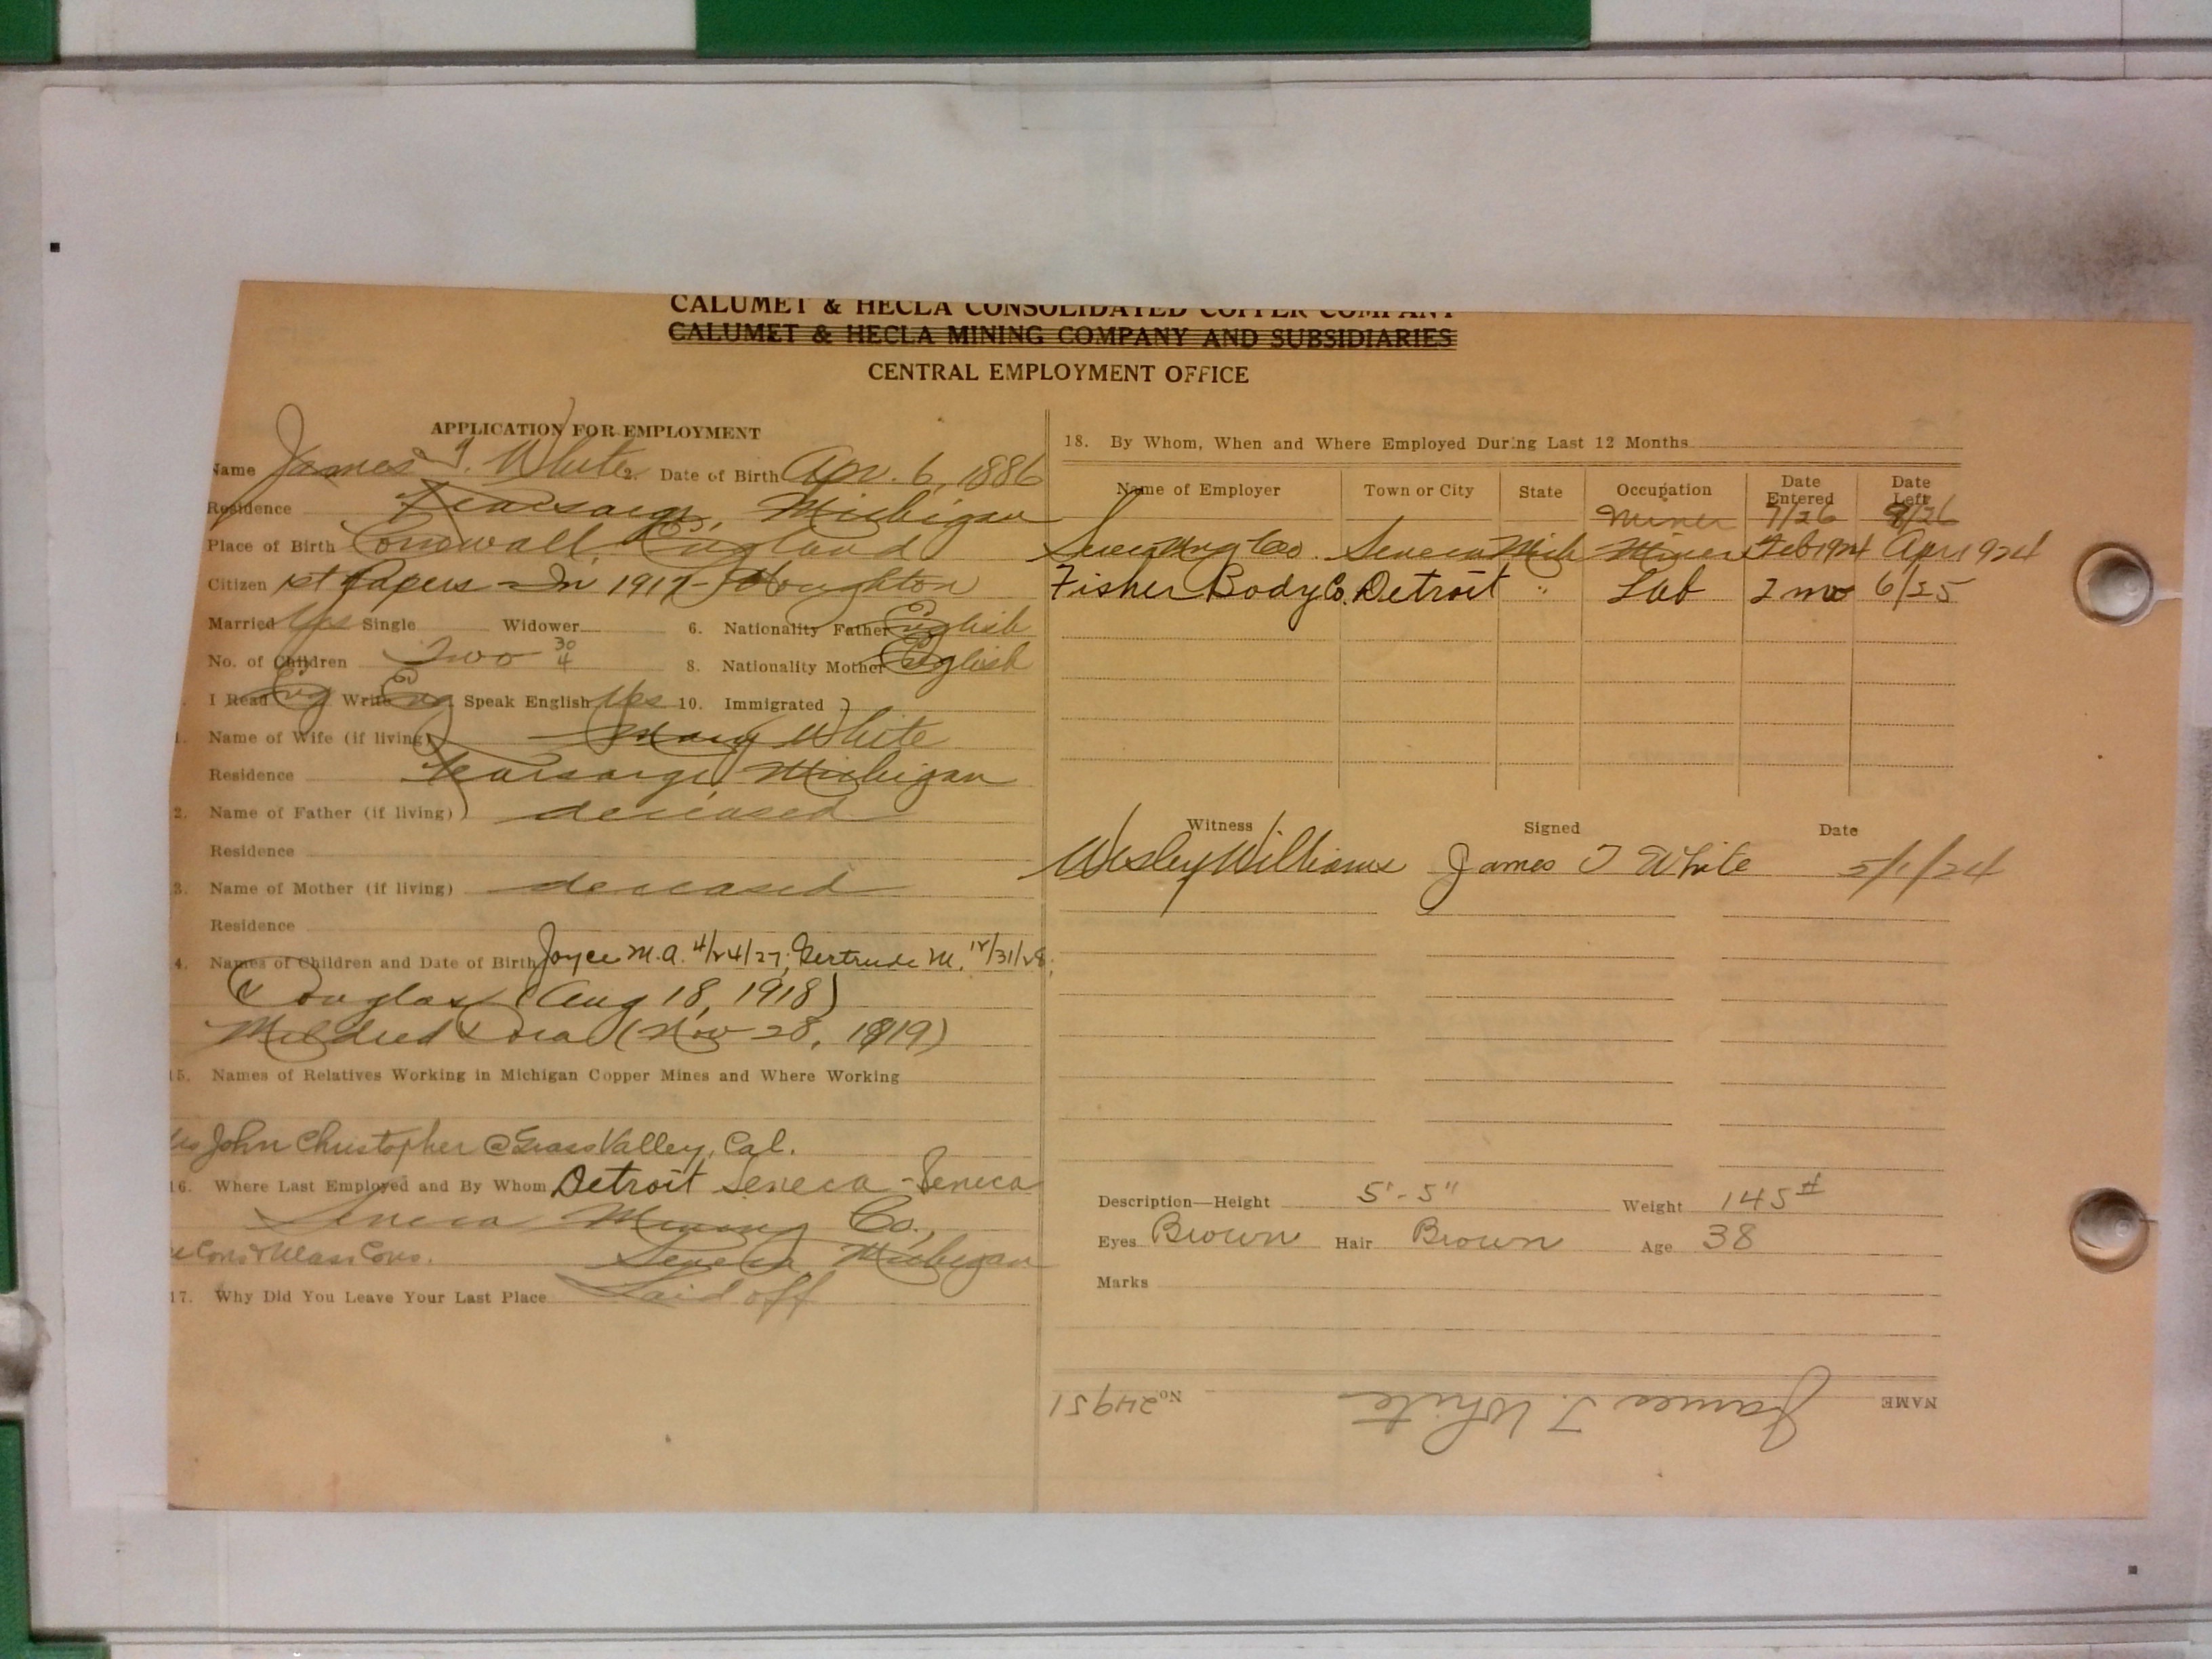 CALUMET & HECLA CONSOLIDATED COPPER COMPANY
CALUMET & HECLA MINING COMPANY AND SUBSIDIARIES
CENTRAL EMPLOYMENT OFFICE
APPLICATION FOR EMPLOYMENT
Name James T. White 2. Date of Birth Apr. 6, 1886
Residence Kearsarge, Michigan
Place of Birth Cornwall England
Citizen 1st Papers - In 1917 - Houghton
Married Yes Single Widower 6. Nationality Father English
No. of Children Two 30 4 8. Nationality Mother English
I Read Eng Write Eng Speak English Yes 10. Immigrated
1. Name of Wife (if living) Mary White
Residence Kearsarge, Michigan
2. Name of Father (if living) deceased
Residence
3. Name of Mother (if living) deceased
Residence
4. Names of Children and Date of Birth Joyce M.A. 4/24/27; Gertrude M. 12/31/28;
Douglas (Aug 18, 1918)
Mildred Dora (Nov 28, 1919)
15. Names of Relatives Working in Michigan Copper Mines and Where Working
John Christopher @ Grass Valley, Cal.
16. Where Last Employed and By Whom Detroit Seneca - Seneca
Seneca Mining Co.,
Cons & Mass Cons. Seneca, Michigan
17. Why Did You Leave Your Last Place Laid off
18. By Whom, When and Where Employed During Last 12 Months
Name of Employer Town or City State Occupation Date Entered Date Left
Miner 7/26 9/26
Seneca Mng Co. Seneca Mich Miner Feb 1924 Apr 1924
Fisher Body Co. Detroit " Lab 2 mo 6/25
Witness Signed Date
Wesley Williams James T White 5/1/24
Description—Height 5'-5" Weight 145#
Eyes Brown Hair Brown Age 38
Marks
NAME James T. White No. 24951